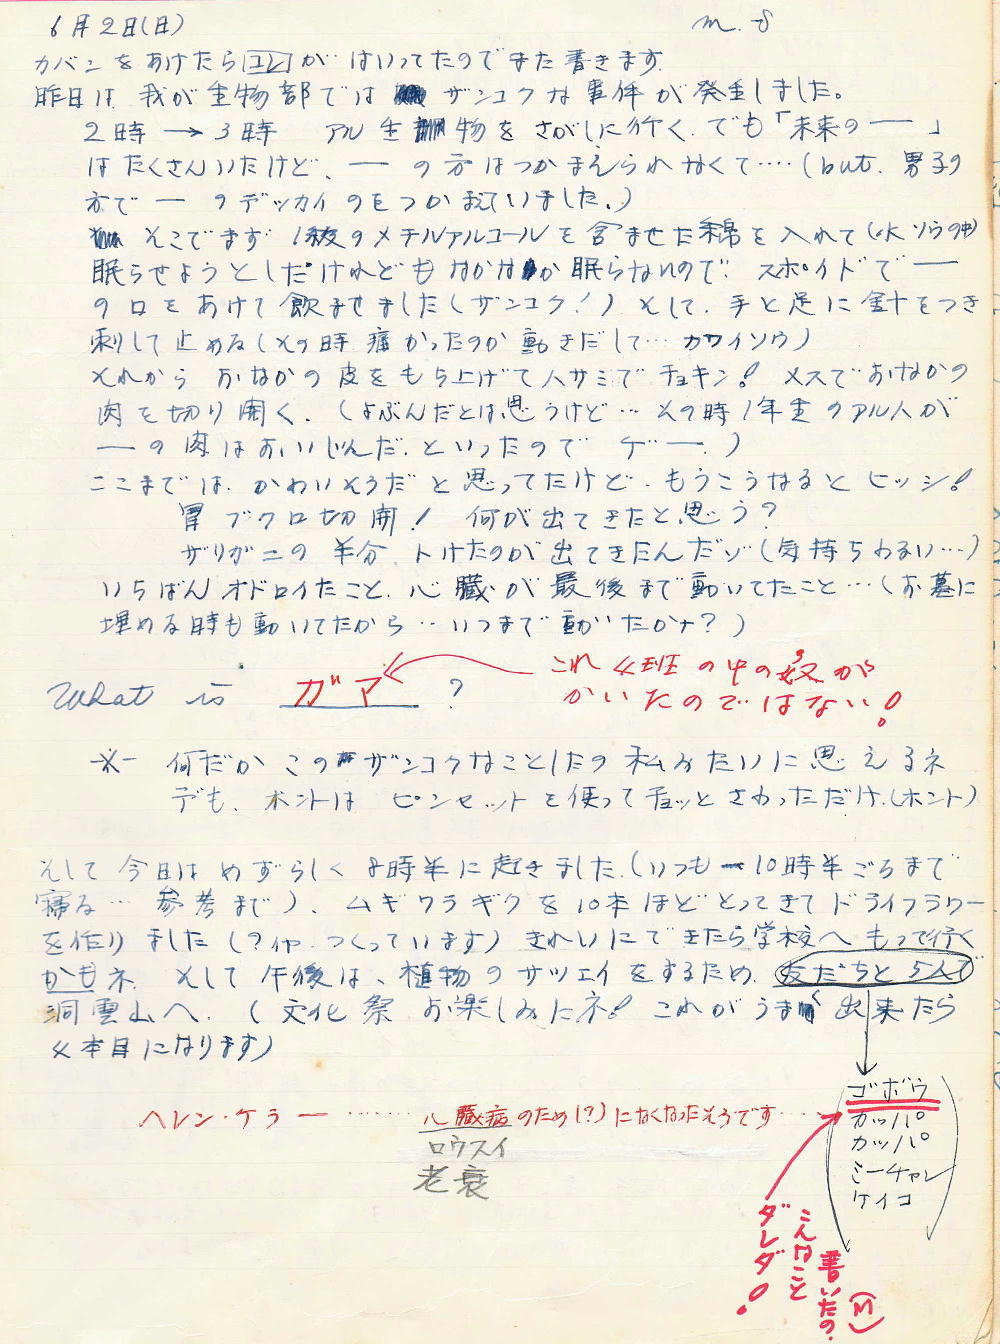 6月2日(日)
m. S
カバンをあけたらコレがはいってたのでまた書きます.
昨日は、我が生物部では ザンコクな事件が発生しました。
2時 → 3時 アル生物をさがしに行く.でも「未来の ー 」
はたくさんいたけど、ー の方はつかまえられなくて‥‥(but. 男子の
方で ー のデッカイのをつかまえていました。)
そこでまず のメチルアルコールを含ませた綿を入れて(水ソウの中)
眠らせようとしたけれどもなかなか眠らないので、スポイドで ー
の口をあけて飲ませました(ザンコク!) そして、手と足に針をつき
刺して止める(その時痛かったのか動きだして… カワイソウ)
それから おなかの皮をもち上げてハサミでチョキン! メスでおなかの
肉を切り開く.(よぶんだとは思うけど… その時1年生のアル人が
ー の肉はおいしいんだ.といったので ゲー.)
ここまでは、かわいそうだと思ってたけど.もうこうなるとヒッシ!
胃ブクロ切開! 何が出てきたと思う?
ザリガニの半分トけたのが出てきたんだゾ(気持ちわるい…)
いちばんオドロイたこと、心臓が最後まで動いてたこと…(お墓に
埋める時も動いてたから‥いつまで動いたかナ?)
What is ガマ ?
これ 4班の中の奴が
かいたのではない!
※ 何だかこの ザンコクなことしたの私みたいに思えるネ
デモ、ホントは ピンセットを使ってチョッとさわっただけ.(ホント)
そして今日はめずらしく8時半に起きました.(いつも 10時半ごろまで
寝る… 参考まで)、ムギワラギクを10本ほどとってきてドライフラワー
を作りました(?イヤ.つくっています)きれいにできたら学校へもって行く
かもネ. そして午後は、植物のサツエイをするため、友だちと5人で
洞雲山へ.(文化祭お楽しみにネ! これがうまく出来たら
4本目になります)
ゴボウ
カッパ
カッパ
ミーチャン
ケイコ
ヘレン・ケラー ‥‥‥ 心臓病のため(?)になくなったそうです‥‥
ロウスイ
老衰
こんなこと
書いたの.
ダレダ!
(M)